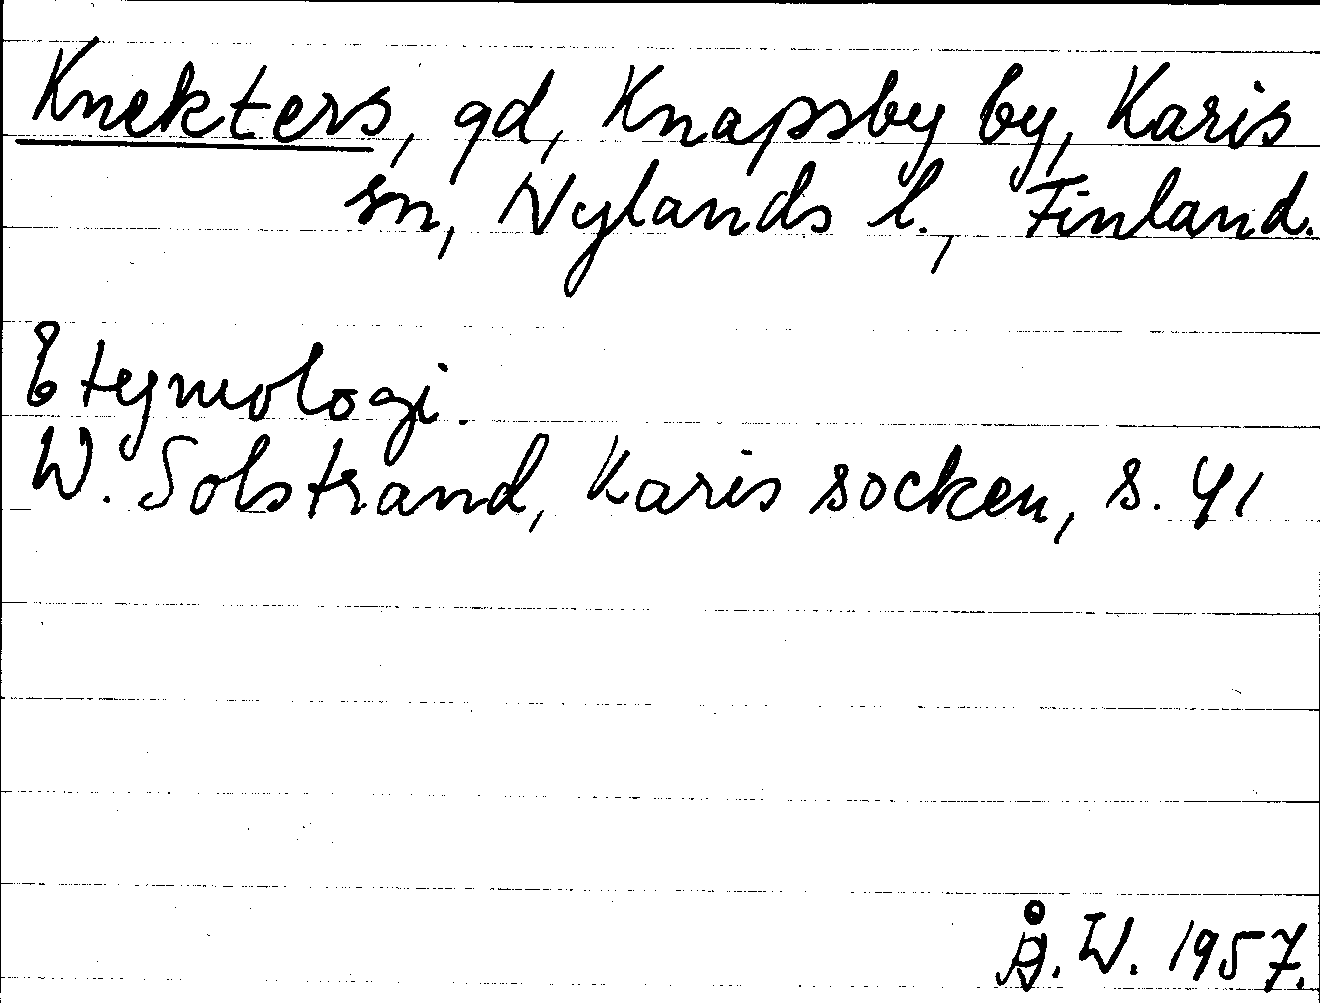 Knekters, gd, Knapsby by, Karis
sn, Nylands l., Finland.
Etymologi.
W. Solstrand, Karis socken, s. 41
Å. W. 1957.